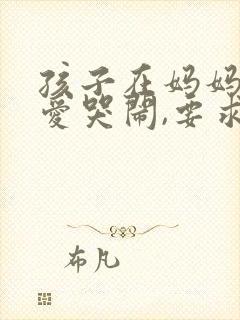 孩子在妈妈
爱哭闹,要求
布凡